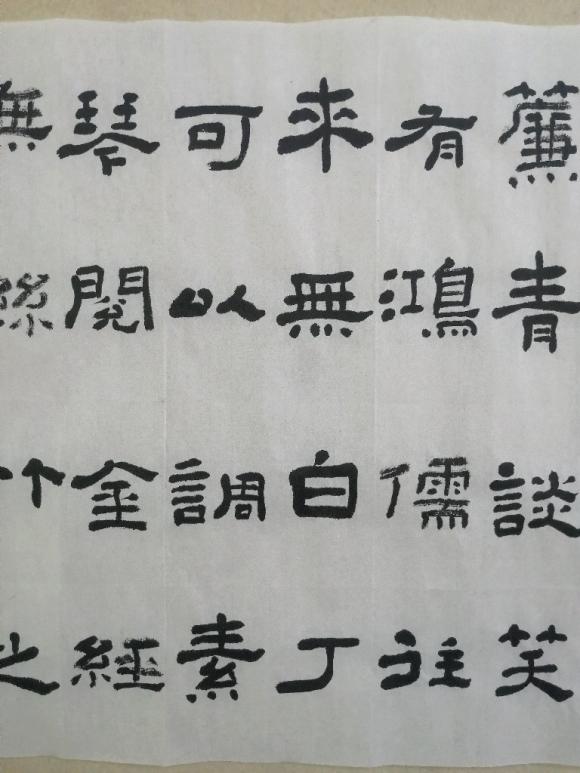 簾青談笑
有鴻儒往
來無白丁
可以調素
琴閱金經
無絲竹之